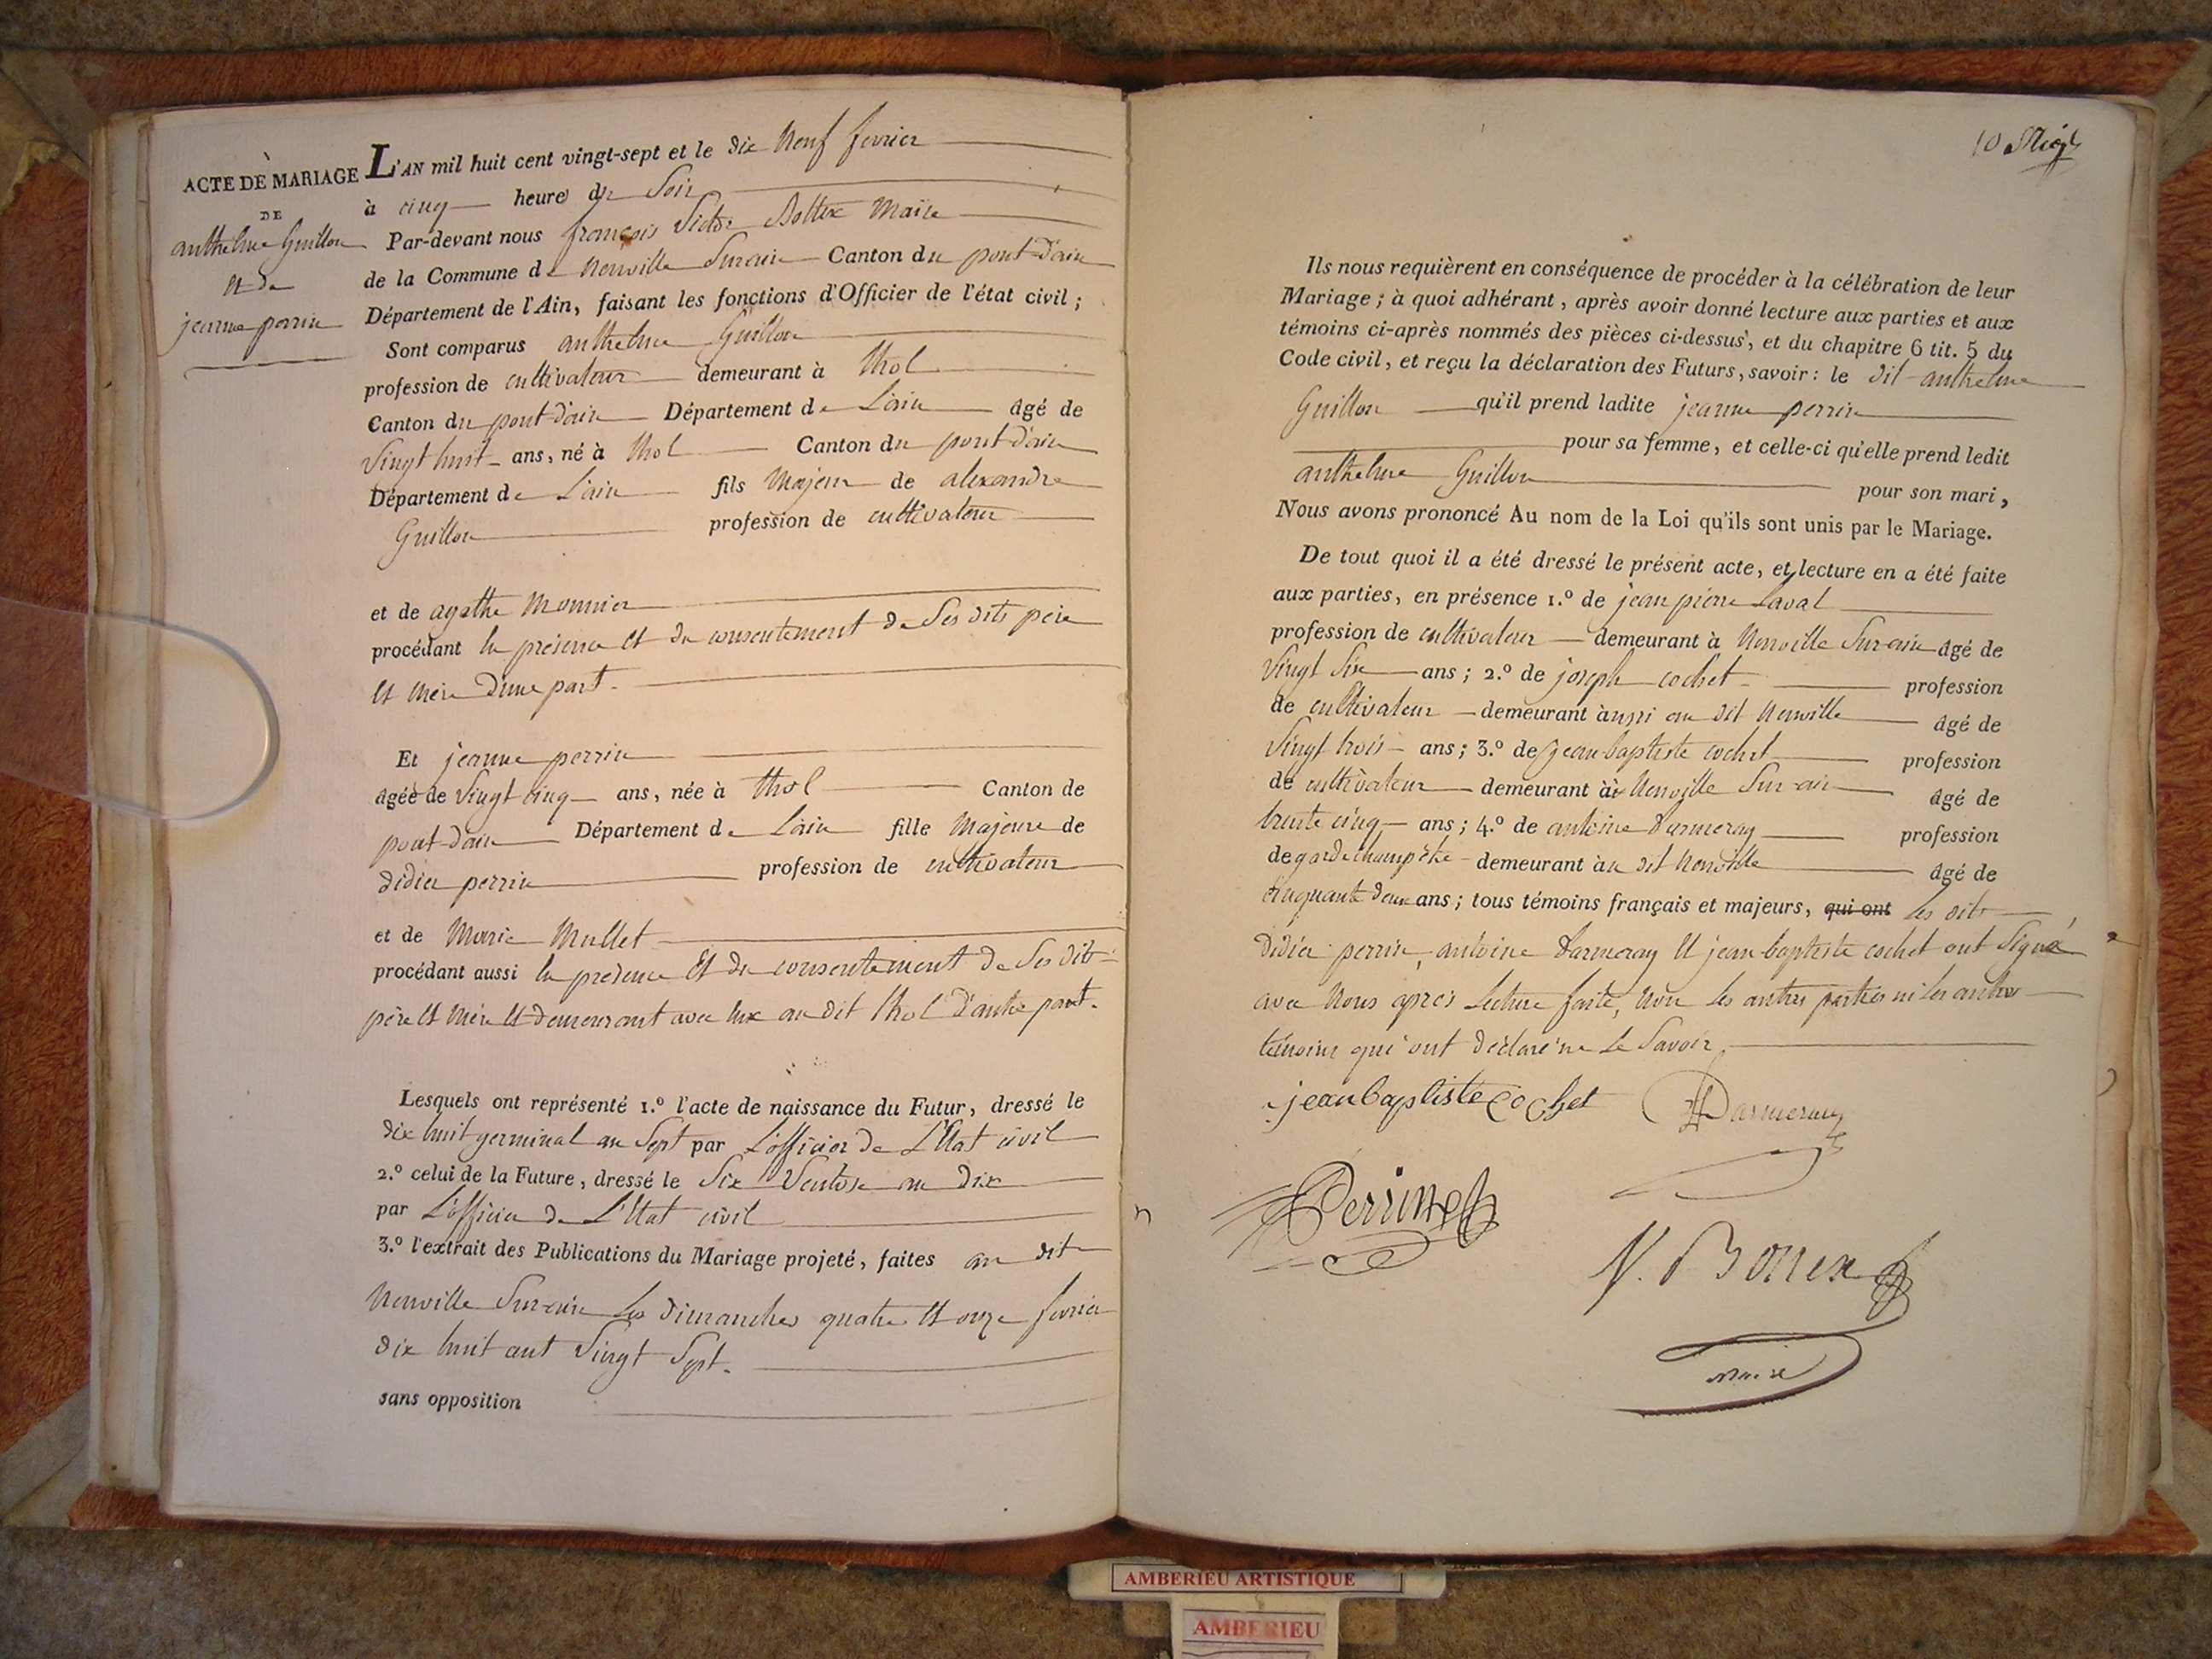 ACTE DE MARIAGE
DE
anthelme Guillon
et de
jeanne perrin
L'AN mil huit cent vingt-sept et le dix Neuf fevrier
à cinq heure du Soir
Par-devant nous françois Victor Bottex Maire
de la Commune de Neuville Surain Canton du pont-d'ain
Département de l'Ain, faisant les fonctions d'Officier de l'état civil ;
Sont comparus anthelme Guillon
profession de cultivateur demeurant à thol
Canton du pont-d'ain Département de L'ain âgé de
Vingt huit ans, né à thol Canton du pont-d'ain
Département de L'ain fils Majeur de alexandre
Guillon profession de cultivateur
et de agathe Monnier
procédant en présence et du consentement de Ses dits père
et mère d'une part.
Et jeanne perrin
âgée de Vingt cinq ans, née à thol Canton de
pont-d'ain Département de L'ain fille Majeure de
didier perrin profession de cultivateur
et de Marie Mullet
procédant aussi en presence Et du consentement de Ses dits
père et mère et demeurant avec eux au dit thol d'autre part.
Lesquels ont représenté 1.º l'acte de naissance du Futur, dressé le
dix huit germinal an Sept par L'officier de L'Etat civil
2.º celui de la Future, dressé le Six Ventose an dix
par L'officier de L'Etat civil
3.º l'extrait des Publications du Mariage projeté, faites au dit
Neuville Sur-ain Les dimanches quatre et onze fevrier
dix huit cent Vingt Sept.
sans opposition
10
Ils nous requièrent en conséquence de procéder à la célébration de leur
Mariage ; à quoi adhérant, après avoir donné lecture aux parties et aux
témoins ci-après nommés des pièces ci-dessus, et du chapitre 6 tit. 5 du
Code civil, et reçu la déclaration des Futurs, savoir : le dit anthelme
Guillon qu'il prend ladite jeanne perrin
pour sa femme, et celle-ci qu'elle prend ledit
anthelme Guillon pour son mari,
Nous avons prononcé Au nom de la Loi qu'ils sont unis par le Mariage.
De tout quoi il a été dressé le présent acte, et lecture en a été faite
aux parties, en présence 1.º de jean pierre Laval
profession de cultivateur demeurant à Neuville Sur-ain âgé de
Vingt Six ans ; 2.º de joseph cochet profession
de cultivateur demeurant aussi au dit Neuville âgé de
Vingt trois ans ; 3.º de jean baptiste cochet profession
de cultivateur demeurant à Neuville Sur-ain âgé de
trente cinq ans ; 4.º de antoine Darmeray profession
de garde champêtre demeurant au dit Neuville âgé de
cinquante deux ans ; tous témoins français et majeurs, qui ont Les dits
Didier perrin, antoine Darmeray Et jean baptiste cochet ont Signé
avec Nous après Lecture faite, Non les autres parties ni les autres
témoins qui ont déclaré ne Le Savoir
jean baptiste cochet Darmeray
Perrin
V. Bottex
maire
AMBERIEU ARTISTIQUE
AMBERIEU